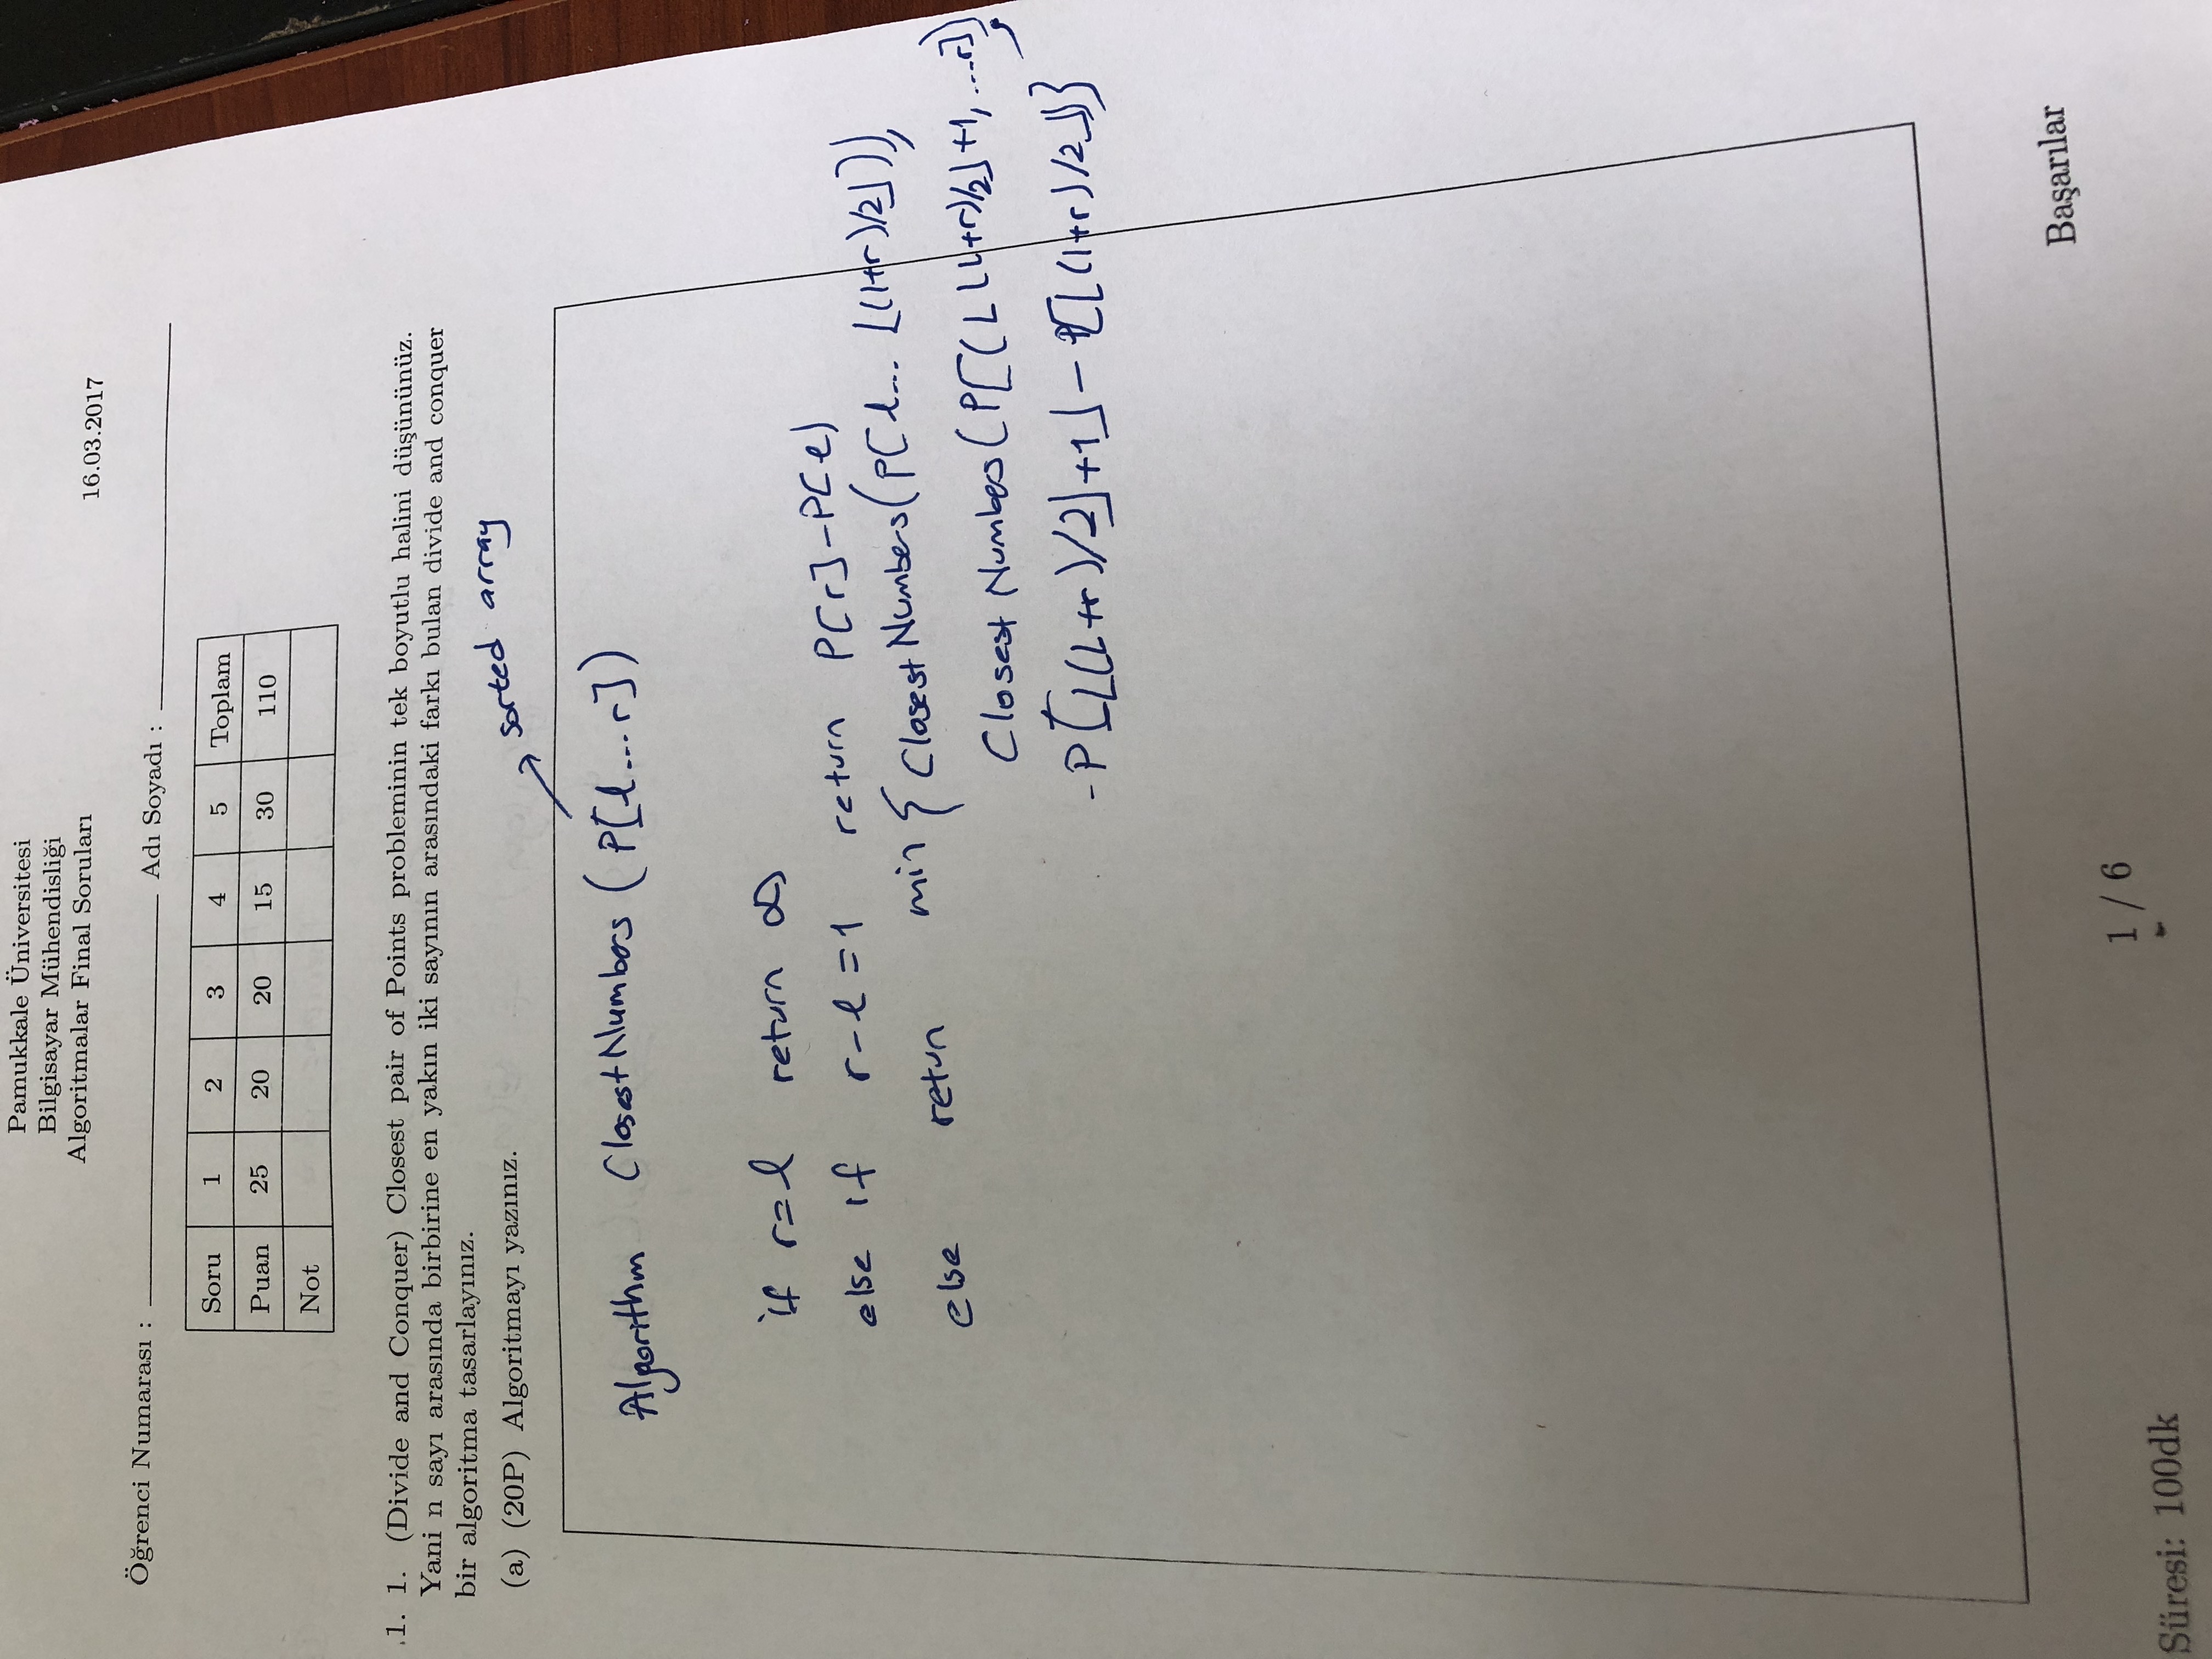 Pamukkale Üniversitesi
Bilgisayar Mühendisliği
Algoritmalar Final Soruları
16.03.2017
Öğrenci Numarası : Adı Soyadı :
Soru 1 2 3 4 5 Toplam
Puan 25 20 20 15 30 110
Not
1. 1. (Divide and Conquer) Closest pair of Points probleminin tek boyutlu halini düşününüz.
Yani n sayı arasında birbirine en yakın iki sayının arasındaki farkı bulan divide and conquer
bir algoritma tasarlayınız.
(a) (20P) Algoritmayı yazınız.
sorted array
Algorithm ClosestNumbers (P[l...r])
if r=l return ∞
else if r-l=1 return P[r]-P[l)
else retun min { Closest Numbers(P[l... ⌊(l+r)/2⌋)),
Closest Numbers(P[(⌊(l+r)/2⌋+1,...r])),
-P[⌊(l+r)/2⌋+1⌋-P[⌊(l+r)/2⌋)}
Başarılar
1 / 6
Süresi: 100dk